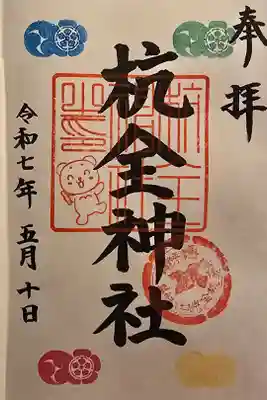 奉拝
杭全神社
令和七年 五月 十日